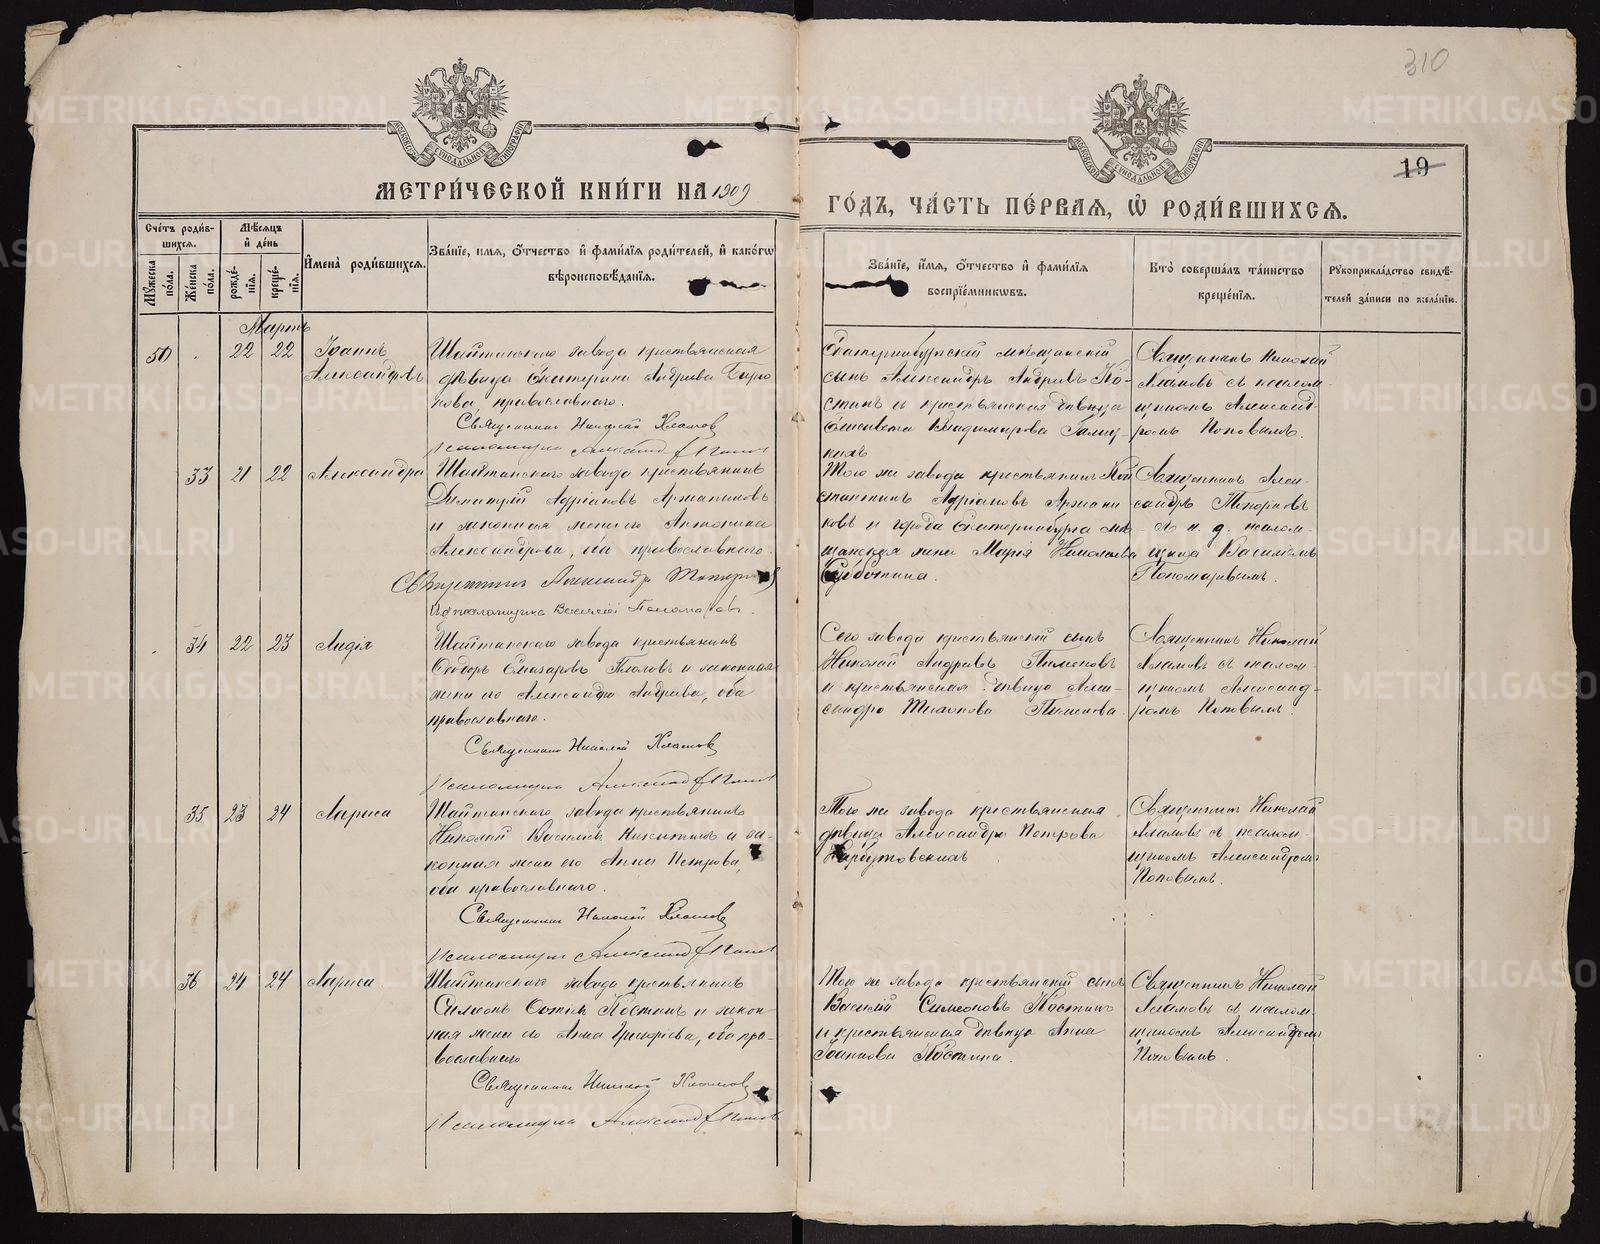 310
19
МЕТРИ́ЧЕСКОЙ КНИ́ГИ НА 1909
ГО́ДЪ, ЧА́СТЬ ПЕ́РВАЯ, Ѡ РОДИ́ВШИХСЯ.
МОСКОВСКОЙ СѴНОДАЛЬНОЙ ТИПОГРАФІИ
МОСКОВСКОЙ СѴНОДАЛЬНОЙ ТИПОГРАФІИ
Сче́тъ роди́в-
шихся.
Мѣ́сяцъ
и҆ де́нь
Мꙋ́жеска по́ла.
Же́нска по́ла.
рожде́-
нїя.
креще́-
нїя.
И҆мена̀ роди́вшихся.
Зва́нїе, и҆́мя, ѻ҆́тчество и҆ фами́лїя роди́телей, и҆ како́гѡ
вѣроисповѣ́данїя.
Зва́нїе, и҆́мя, ѻ҆́тчество и҆ фами́лїя
воспрїе́мникѡвъ.
Кто̀ соверша́лъ та́инство
креще́нїя.
Рꙋкоприкла́дство свидѣ́-
телей за́писи по жела́нїю.
Мартъ
50 22 22 Іоаннъ
Александровъ
Шайтанскаго завода крестьянская
дѣвица Екатерина Андреева Бирю
кова, православнаго.
Священникъ Николай Хламовъ
Псаломщикъ Александръ Поповъ
Екатеринбургскій мѣщанскій
сынъ Александръ Андреевъ Ко-
стинъ и крестьянская дѣвица
Елисавета Владимирова
Священникъ Николай
Хламовъ съ псалом-
щикомъ Александ-
ромъ Поповымъ.
33 21 22 Александра
Шайтанскаго завода крестьянинъ
Димитрій Адріановъ Аржанниковъ
и законная жена его Антонина
Александрова, оба православнаго.
Священникъ Александръ Топорковъ
И. д. псаломщика Василій Пономаревъ.
Того же завода крестьянинъ Кон
стантинъ Адріановъ Аржанни
ковъ и города Екатеринбурга мѣ
щанская жена Марія Николаева
Субботина.
Священникъ Алек-
сандръ Топорковъ
съ и. д. псалом-
щика Василіемъ
Пономаревымъ.
34 22 23 Лидія
Шайтанскаго завода крестьянинъ
Ѳедоръ Елизаровъ и законная
жена его Александра Андреева, оба
православнаго.
Священникъ Николай Хламовъ
Псаломщикъ Александръ Поповъ
Сего завода крестьянскій сынъ
Николай Андреевъ Пименовъ
и крестьянская дѣвица Алек-
сандра Тихонова Пименова.
Священникъ Николай
Хламовъ съ псалом
щикомъ Александ-
ромъ Поповымъ.
35 23 24 Лариса
Шайтанскаго завода крестьянинъ
Николай Васильевъ Никитинъ и за-
конная жена его Анна Петрова,
оба православнаго.
Священникъ Николай Хламовъ
Псаломщикъ Александръ Поповъ
Того же завода крестьянская
дѣвица Александра Петрова
Священникъ Николай
Хламовъ съ псалом-
щикомъ Александромъ
Поповымъ.
36 24 24 Лариса
Шайтанскаго завода крестьянинъ
Симеонъ Костинъ и закон-
ная жена его Анна Григорьева, оба пра-
вославнаго
Священникъ Николай Хламовъ
Псаломщикъ Александръ Поповъ
Того же завода крестьянскій сынъ
Василій Симеоновъ Костинъ
и крестьянская дѣвица Анна
Іоаннова Костина.
Священникъ Николай
Хламовъ съ псалом-
щикомъ Александромъ
Поповымъ.
METRIKI.GASO-URAL.RU